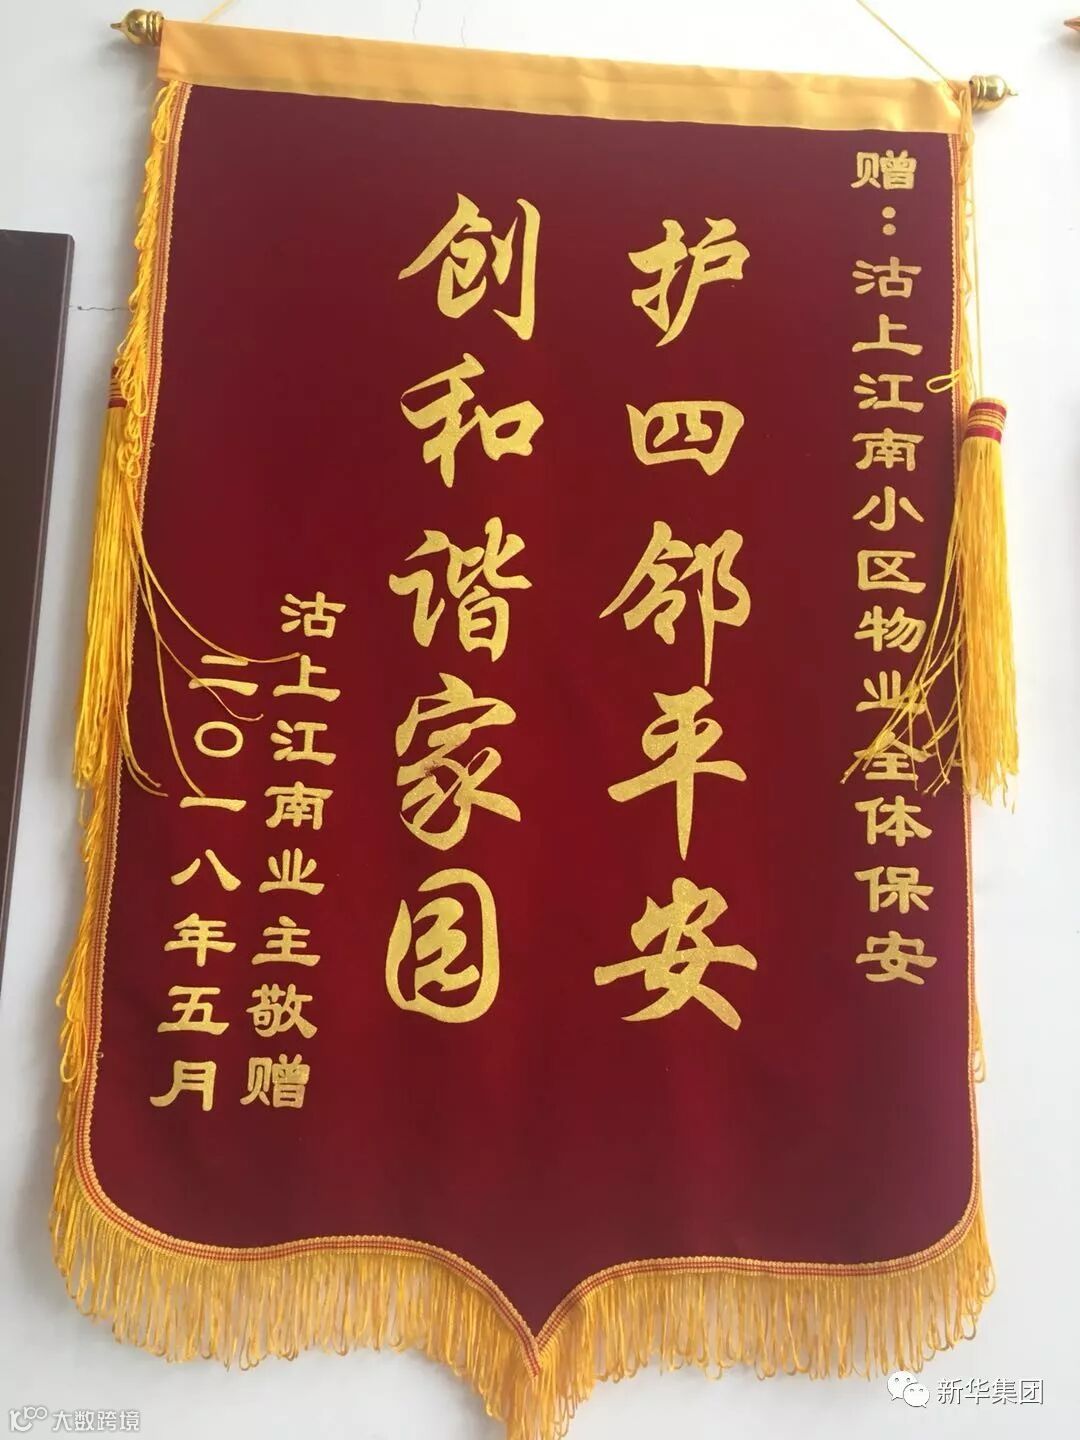 赠：沽上江南小区物业全体保安
护四邻平安
创和谐家园
沽上江南业主敬赠
二〇一八年五月
新华集团
大数跨境